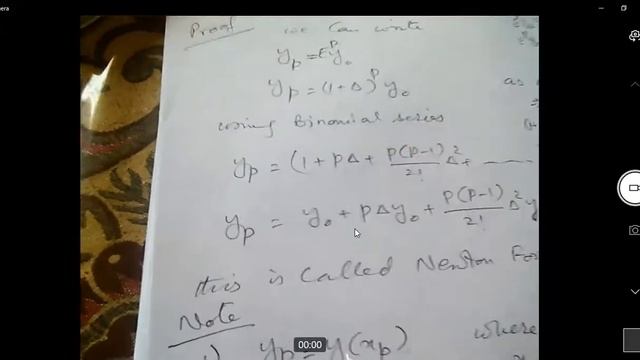 Proof we can write
y_p = E^p y_0
y_p = (1 + Δ)^p y_0 as
using Binomial series
y_p = (1 + pΔ + p(p-1)/2! Δ^2 + ------
y_p = y_0 + pΔy_0 + p(p-1)/2! Δ^2 y
this is called Newton For
Note
1) y_p = y(x_p) where
00:00